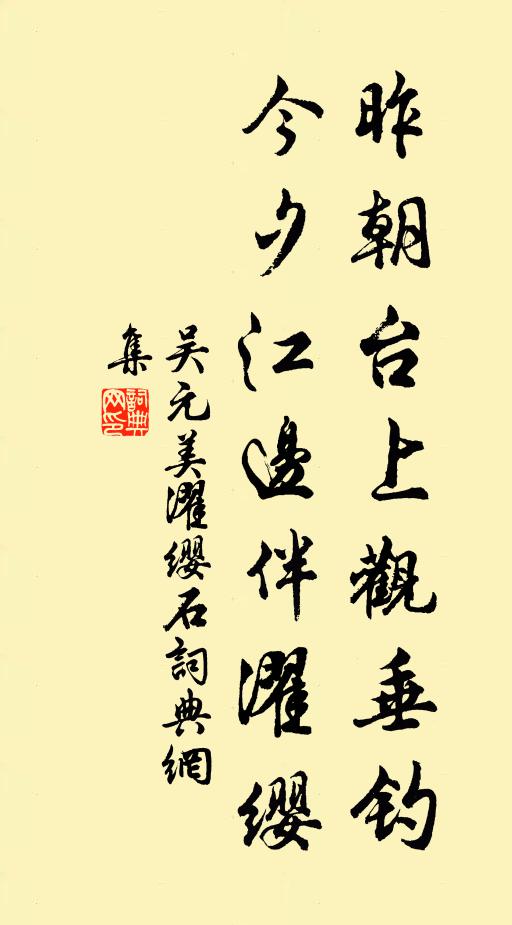 昨朝台上觀垂钓
今夕江邊伴濯缨
吴元美濯缨石詞典網
集
詞典
网印